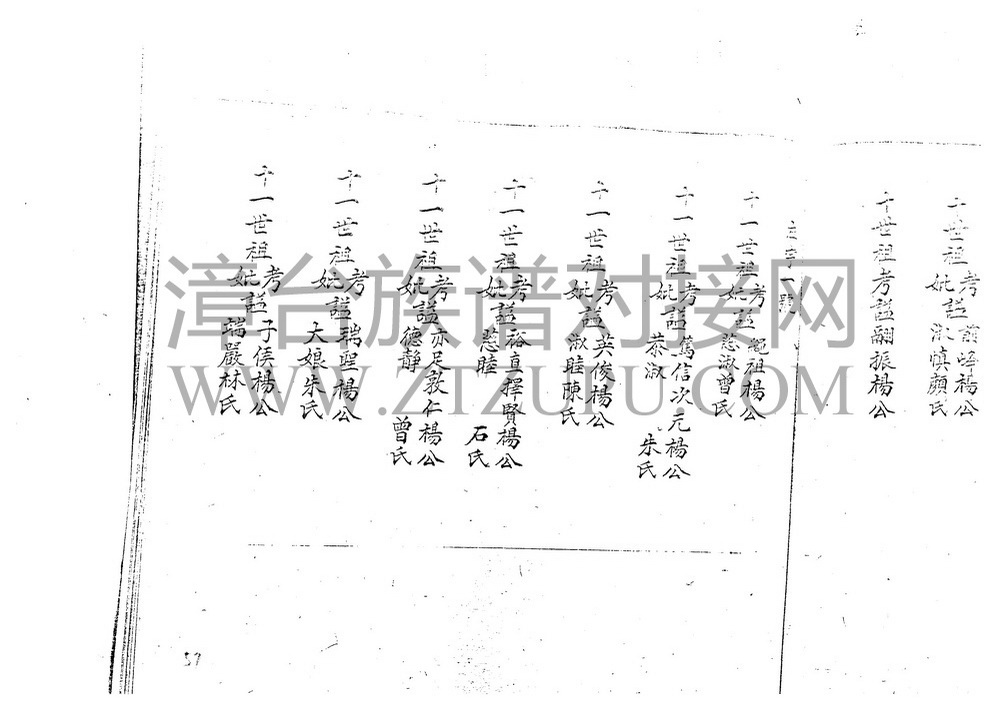 十世祖考 前峰楊公
妣謚 淑慎顏氏
十世祖考謚翮振楊公
十一世祖考 繩祖楊公
妣謚 慈淑曾氏
十一世祖考 篤信次元楊公
妣謚 恭淑 朱氏
十一世祖考 英俊楊公
妣謚 淑睦陳氏
十一世祖考 裕直擇賢楊公
妣謚 慈睦 石氏
十一世祖考 亦足敦仁楊公
妣謚 德靜 曾氏
十一世祖考 瑞聖楊公
妣謚 大娘朱氏
十一世祖考 子侯楊公
妣謚 端嚴林氏
57
漳台族谱对接网
WWW.ZTZUPU.COM